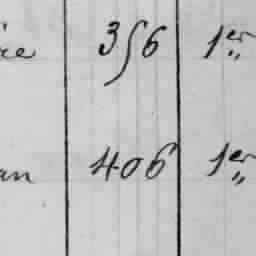 ire 356 1er„
an 406 1er„